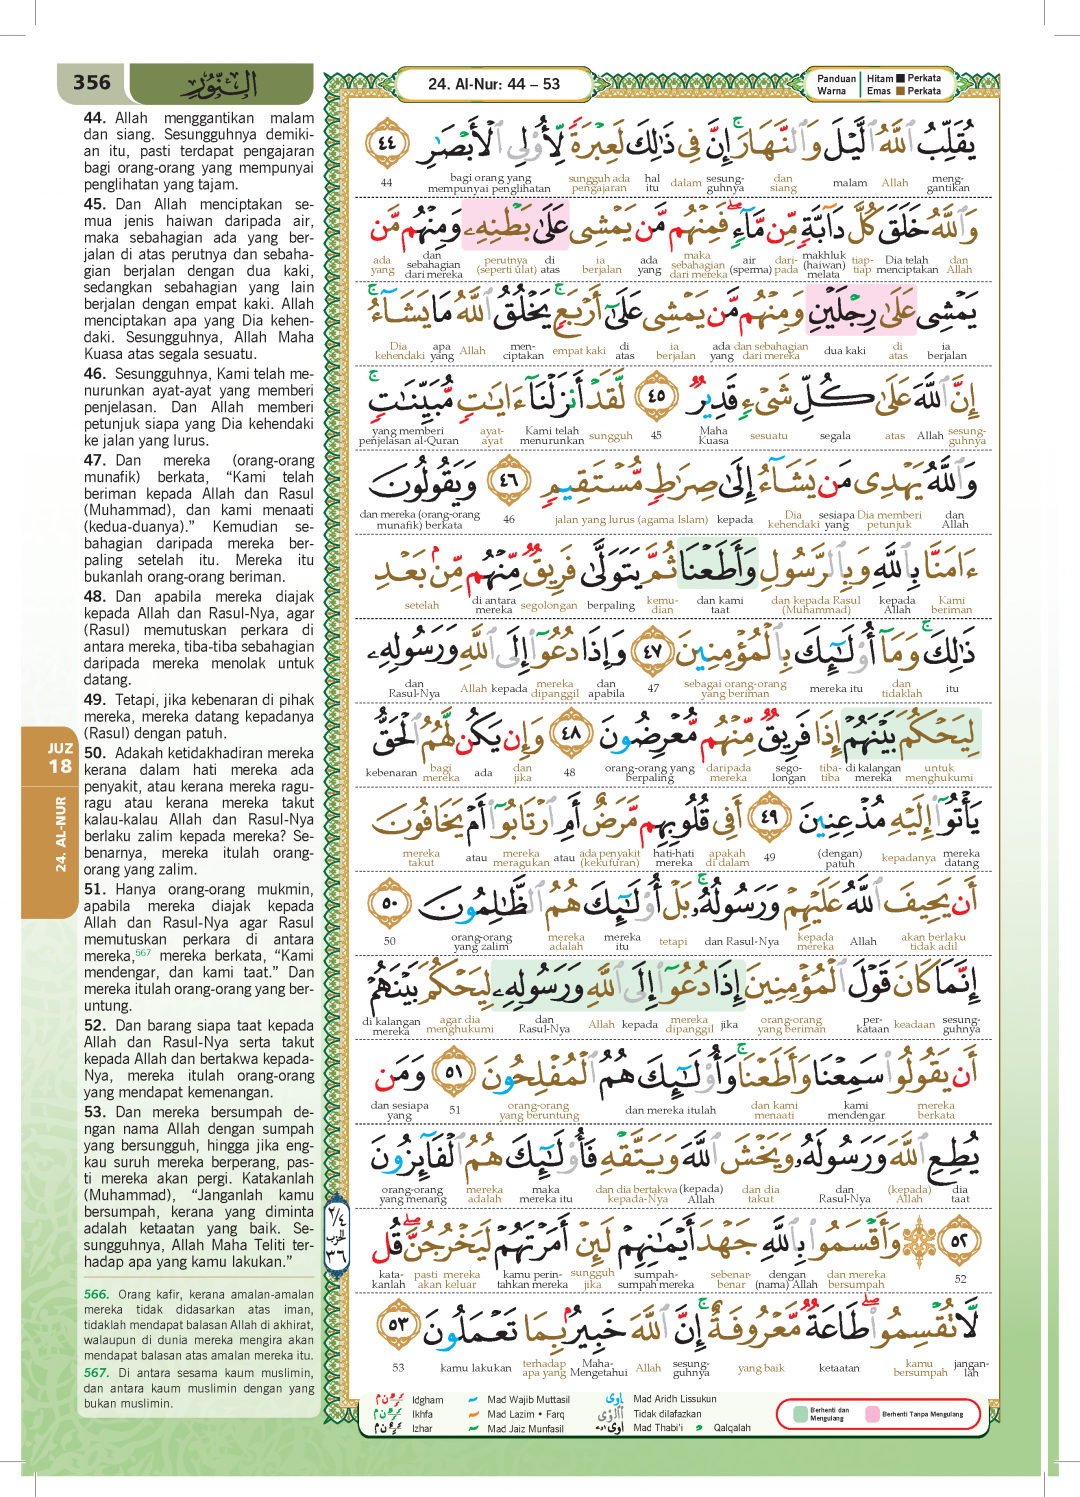 356
النور
44. Allah menggantikan malam
dan siang. Sesungguhnya demiki-
an itu, pasti terdapat pengajaran
bagi orang-orang yang mempunyai
penglihatan yang tajam.
45. Dan Allah menciptakan se-
mua jenis haiwan daripada air,
maka sebahagian ada yang ber-
jalan di atas perutnya dan sebaha-
gian berjalan dengan dua kaki,
sedangkan sebahagian yang lain
berjalan dengan empat kaki. Allah
menciptakan apa yang Dia kehen-
daki. Sesungguhnya, Allah Maha
Kuasa atas segala sesuatu.
46. Sesungguhnya, Kami telah me-
nurunkan ayat-ayat yang memberi
penjelasan. Dan Allah memberi
petunjuk siapa yang Dia kehendaki
ke jalan yang lurus.
47. Dan mereka (orang-orang
munafik) berkata, “Kami telah
beriman kepada Allah dan Rasul
(Muhammad), dan kami menaati
(kedua-duanya).” Kemudian se-
bahagian daripada mereka ber-
paling setelah itu. Mereka itu
bukanlah orang-orang beriman.
48. Dan apabila mereka diajak
kepada Allah dan Rasul-Nya, agar
(Rasul) memutuskan perkara di
antara mereka, tiba-tiba sebahagian
daripada mereka menolak untuk
datang.
49. Tetapi, jika kebenaran di pihak
mereka, mereka datang kepadanya
(Rasul) dengan patuh.
50. Adakah ketidakhadiran mereka
kerana dalam hati mereka ada
penyakit, atau kerana mereka ragu-
ragu atau kerana mereka takut
kalau-kalau Allah dan Rasul-Nya
berlaku zalim kepada mereka? Se-
benarnya, mereka itulah orang-
orang yang zalim.
51. Hanya orang-orang mukmin,
apabila mereka diajak kepada
Allah dan Rasul-Nya agar Rasul
memutuskan perkara di antara
mereka,567 mereka berkata, “Kami
mendengar, dan kami taat.” Dan
mereka itulah orang-orang yang ber-
untung.
52. Dan barang siapa taat kepada
Allah dan Rasul-Nya serta takut
kepada Allah dan bertakwa kepada-
Nya, mereka itulah orang-orang
yang mendapat kemenangan.
53. Dan mereka bersumpah de-
ngan nama Allah dengan sumpah
yang bersungguh, hingga jika eng-
kau suruh mereka berperang, pas-
ti mereka akan pergi. Katakanlah
(Muhammad), “Janganlah kamu
bersumpah, kerana yang diminta
adalah ketaatan yang baik. Se-
sungguhnya, Allah Maha Teliti ter-
hadap apa yang kamu lakukan.”
566. Orang kafir, kerana amalan-amalan
mereka tidak didasarkan atas iman,
tidaklah mendapat balasan Allah di akhirat,
walaupun di dunia mereka mengira akan
mendapat balasan atas amalan mereka itu.
567. Di antara sesama kaum muslimin,
dan antara kaum muslimin dengan yang
bukan muslimin.
JUZ
18
24. AL-NUR
24. Al-Nur: 44 – 53
Panduan Warna
Hitam Perkata
Emas Perkata
يُقَلِّبُ ٱللَّهُ ٱلَّيْلَ وَٱلنَّهَارَ ۚ إِنَّ فِى ذَٰلِكَ لَعِبْرَةً لِّأُو۟لِى ٱلْأَبْصَٰرِ ٤٤
meng-gantikan Allah malam dan siang sesung-guhnya dalam hal itu sungguh ada pengajaran bagi orang yang mempunyai penglihatan 44
وَٱللَّهُ خَلَقَ كُلَّ دَآبَّةٍ مِّن مَّآءٍ ۖ فَمِنْهُم مَّن يَمْشِى عَلَىٰ بَطْنِهِۦ وَمِنْهُم مَّن
dan Allah Dia telah menciptakan tiap-tiap makhluk (haiwan) melata dari-pada air (sperma) maka sebahagian dari mereka ada yang ia berjalan di atas perutnya (seperti ulat) dan sebahagian dari mereka ada yang
يَمْشِى عَلَىٰ رِجْلَيْنِ وَمِنْهُم مَّن يَمْشِى عَلَىٰٓ أَرْبَعٍ ۚ يَخْلُقُ ٱللَّهُ مَا يَشَآءُ ۚ
ia berjalan di atas dua kaki dan sebahagian dari mereka ada yang ia berjalan di atas empat kaki men-ciptakan Allah apa yang Dia kehendaki
إِنَّ ٱللَّهَ عَلَىٰ كُلِّ شَىْءٍ قَدِيرٌ ٤٥ لَّقَدْ أَنزَلْنَآ ءَايَٰتٍ مُّبَيِّنَٰتٍ ۚ
sesung-guhnya Allah atas segala sesuatu Maha Kuasa 45 sungguh Kami telah menurunkan ayat-ayat yang memberi penjelasan al-Quran
وَٱللَّهُ يَهْدِى مَن يَشَآءُ إِلَىٰ صِرَٰطٍ مُّسْتَقِيمٍ ٤٦ وَيَقُولُونَ
dan Allah Dia memberi petunjuk sesiapa yang Dia kehendaki kepada jalan yang lurus (agama Islam) 46 dan mereka (orang-orang munafik) berkata
ءَامَنَّا بِٱللَّهِ وَبِٱلرَّسُولِ وَأَطَعْنَا ثُمَّ يَتَوَلَّىٰ فَرِيقٌ مِّنْهُم مِّنۢ بَعْدِ
Kami beriman kepada Allah dan kepada Rasul (Muhammad) dan kami taat kemu-dian berpaling segolongan di antara mereka setelah
ذَٰلِكَ ۚ وَمَآ أُو۟لَٰٓئِكَ بِٱلْمُؤْمِنِينَ ٤٧ وَإِذَا دُعُوٓا۟ إِلَى ٱللَّهِ وَرَسُولِهِۦ
itu dan tidaklah mereka itu sebagai orang-orang yang beriman 47 dan apabila mereka dipanggil kepada Allah dan Rasul-Nya
لِيَحْكُمَ بَيْنَهُمْ إِذَا فَرِيقٌ مِّنْهُم مُّعْرِضُونَ ٤٨ وَإِن يَكُن لَّهُمُ ٱلْحَقُّ
untuk menghukumi di kalangan mereka tiba-tiba sego-longan daripada mereka orang-orang yang berpaling 48 dan jika ada bagi mereka kebenaran
يَأْتُوٓا۟ إِلَيْهِ مُذْعِنِينَ ٤٩ أَفِى قُلُوبِهِم مَّرَضٌ أَمِ ٱرْتَابُوٓا۟ أَمْ يَخَافُونَ
mereka datang kepadanya (dengan) patuh 49 apakah di dalam hati-hati mereka ada penyakit (kekufuran) atau mereka meragukan atau mereka takut
أَن يَحِيفَ ٱللَّهُ عَلَيْهِمْ وَرَسُولُهُۥ ۚ بَلْ أُو۟لَٰٓئِكَ هُمُ ٱلظَّٰلِمُونَ ٥٠
akan berlaku tidak adil Allah kepada mereka dan Rasul-Nya tetapi mereka itu mereka adalah orang-orang yang zalim 50
إِنَّمَا كَانَ قَوْلَ ٱلْمُؤْمِنِينَ إِذَا دُعُوٓا۟ إِلَى ٱللَّهِ وَرَسُولِهِۦ لِيَحْكُمَ بَيْنَهُمْ
sesung-guhnya keadaan per-kataan orang-orang yang beriman jika mereka dipanggil kepada Allah dan Rasul-Nya agar dia menghukumi di kalangan mereka
أَن يَقُولُوا۟ سَمِعْنَا وَأَطَعْنَا ۚ وَأُو۟لَٰٓئِكَ هُمُ ٱلْمُفْلِحُونَ ٥١ وَمَن
mereka berkata kami mendengar dan kami menaati dan mereka itulah orang-orang yang beruntung 51 dan sesiapa yang
يُطِعِ ٱللَّهَ وَرَسُولَهُۥ وَيَخْشَ ٱللَّهَ وَيَتَّقْهِ فَأُو۟لَٰٓئِكَ هُمُ ٱلْفَآئِزُونَ
dia taat (kepada) Allah dan Rasul-Nya dan dia takut (kepada) Allah dan dia bertakwa kepada-Nya maka mereka itu mereka adalah orang-orang yang menang
٢/٤ الحزب ٣٦
٥٢ وَأَقْسَمُوا۟ بِٱللَّهِ جَهْدَ أَيْمَٰنِهِمْ لَئِنْ أَمَرْتَهُمْ لَيَخْرُجُنَّ ۖ قُل
52 dan mereka bersumpah dengan (nama) Allah sebenar-benar sumpah-sumpah mereka sungguh jika kamu perin-tahkan mereka pasti mereka akan keluar kata-kanlah
لَّا تُقْسِمُوا۟ ۖ طَاعَةٌ مَّعْرُوفَةٌ ۚ إِنَّ ٱللَّهَ خَبِيرٌۢ بِمَا تَعْمَلُونَ ٥٣
jangan-lah kamu bersumpah ketaatan yang baik sesung-guhnya Allah Maha-Mengetahui terhadap apa yang kamu lakukan 53
Idgham
Ikhfa
Izhar
Mad Wajib Muttasil
Mad Lazim • Farq
Mad Jaiz Munfasil
Mad Aridh Lissukun
Tidak dilafazkan
Mad Thabi'i
Qalqalah
Berhenti dan Mengulang
Berhenti Tanpa Mengulang